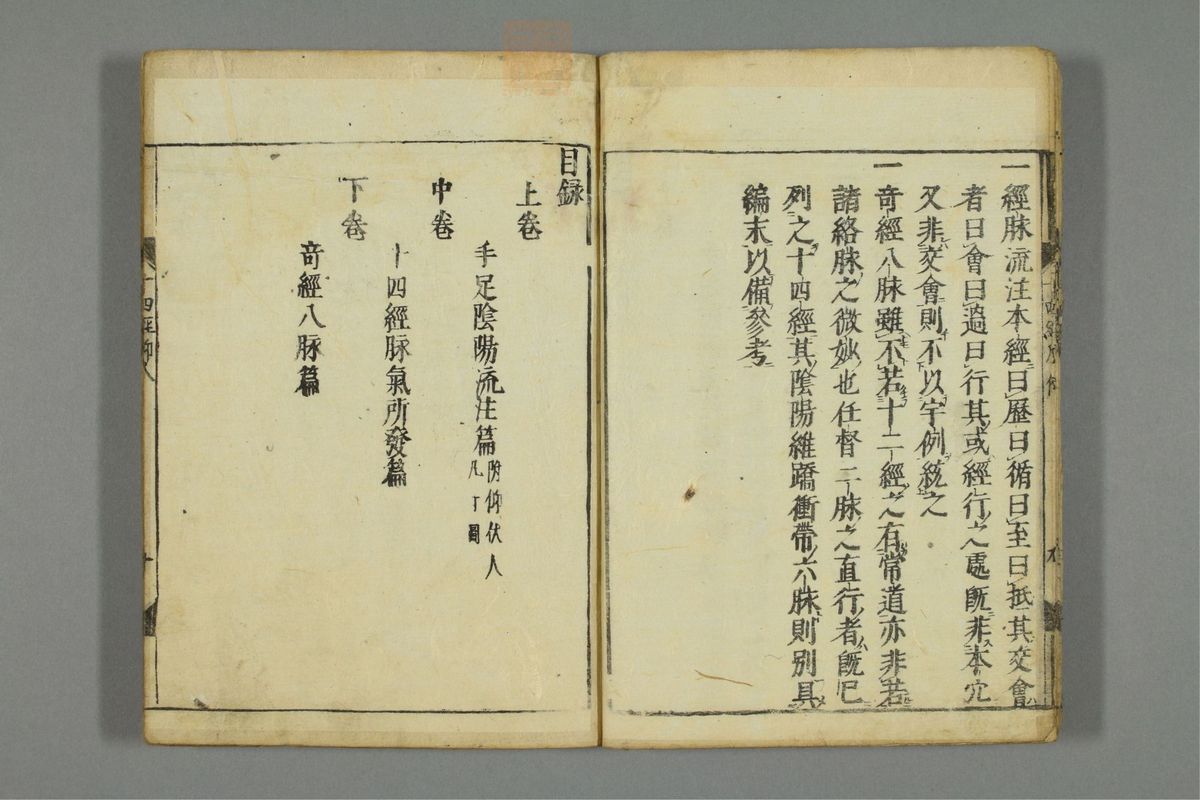 一經脉流注本經曰歷曰循曰至曰抵其交會
者曰會曰過曰行其或經行之處既非本穴
又非交會則不以字例統之
一奇經八脉雖不若十二經之有常道亦非若
諸絡脉之微妙也任督二脉之直行者既已
列之十四經其陰陽維蹻衝帶六脉則別具
編末以備參考
目録
上卷
手足陰陽流注篇 附仰伏人
尺寸圖
中卷
十四經脉氣所發篇
下卷
奇經八脉篇